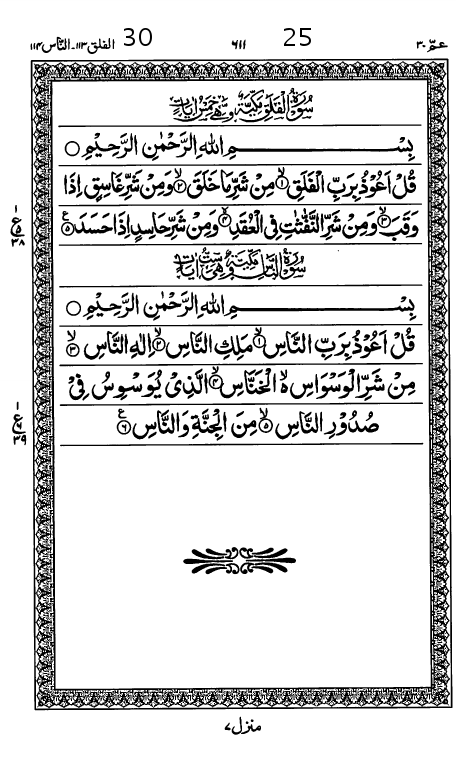 عمّ ٣٠ 25 ٦١١ 30 الفلق ١١٣-الناس ١١٤
سُوْرَةُ الْفَلَقِ مَكِّيَّةٌ وَّهِىَ خَمْسُ اٰيَاتٍ
بِسْمِ اللهِ الرَّحْمٰنِ الرَّحِيْمِ ○
قُلْ اَعُوْذُ بِرَبِّ الْفَلَقِ ۙ﴿۱﴾ مِنْ شَرِّ مَا خَلَقَ ۙ﴿۲﴾ وَمِنْ شَرِّ غَاسِقٍ اِذَا
وَقَبَ ۙ﴿۳﴾ وَمِنْ شَرِّ النَّفّٰثٰتِ فِى الْعُقَدِ ۙ﴿۴﴾ وَمِنْ شَرِّ حَاسِدٍ اِذَا حَسَدَ ﴿۵﴾ ع
١ ع ٥ ٣٨
سُوْرَةُ النَّاسِ مَكِّيَّةٌ وَّهِىَ سِتُّ اٰيَاتٍ
بِسْمِ اللهِ الرَّحْمٰنِ الرَّحِيْمِ ○
قُلْ اَعُوْذُ بِرَبِّ النَّاسِ ۙ﴿۱﴾ مَلِكِ النَّاسِ ۙ﴿۲﴾ اِلٰهِ النَّاسِ ۙ﴿۳﴾
مِنْ شَرِّ الْوَسْوَاسِ ۙ۬ الْخَنَّاسِ ۙ﴿۴﴾ الَّذِىْ يُوَسْوِسُ فِىْ
صُدُوْرِ النَّاسِ ۙ﴿۵﴾ مِنَ الْجِنَّةِ وَالنَّاسِ ﴿۶﴾ ع
١ ع ٦ ٣٩
منزل ٧